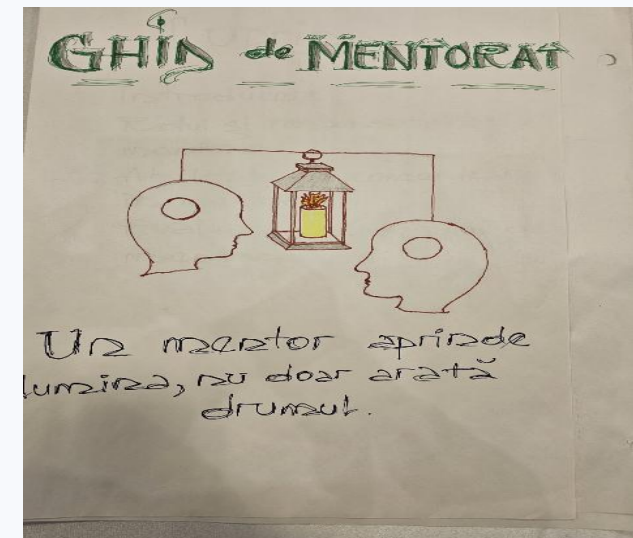 GHID de MENTORAT
Un mentor aprinde
lumina, nu doar arată
drumul.